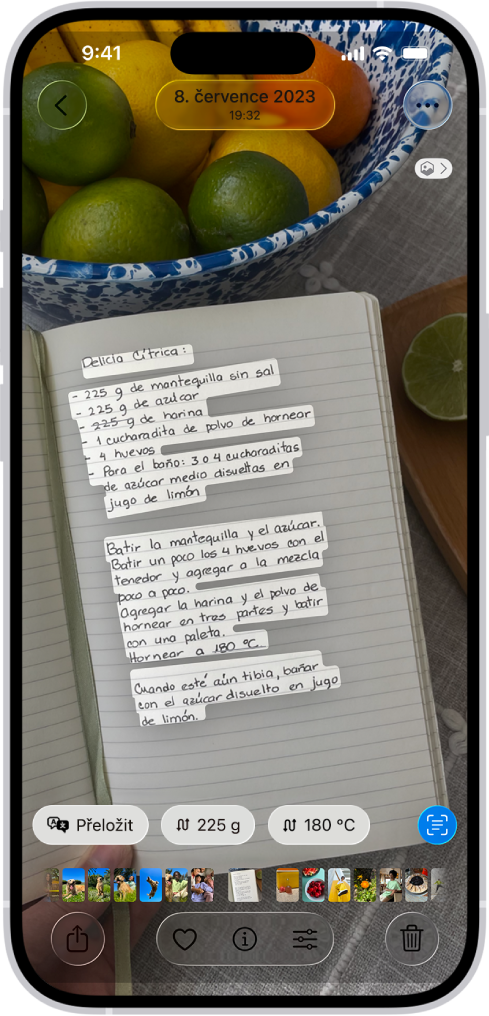 9:41
8. července 2023
19:32
Delicia Cítrica:
- 225 g de mantequilla sin sal
- 225 g de azúcar
- 225 g de harina
- 1 cucharadita de polvo de hornear
- 4 huevos
- Para el baño: 3 o 4 cucharaditas
de azúcar medio disueltas en
jugo de limón
Batir la mantequilla y el azúcar.
Batir un poco los 4 huevos con el
tenedor y agregar a la mezcla
poco a poco.
Agregar la harina y el polvo de
hornear en tres partes y batir
con una paleta.
Hornear a 180 °C.
Cuando esté aún tibia, bañar
con el azúcar disuelto en jugo
de limón.
Přeložit
225 g
180 °C